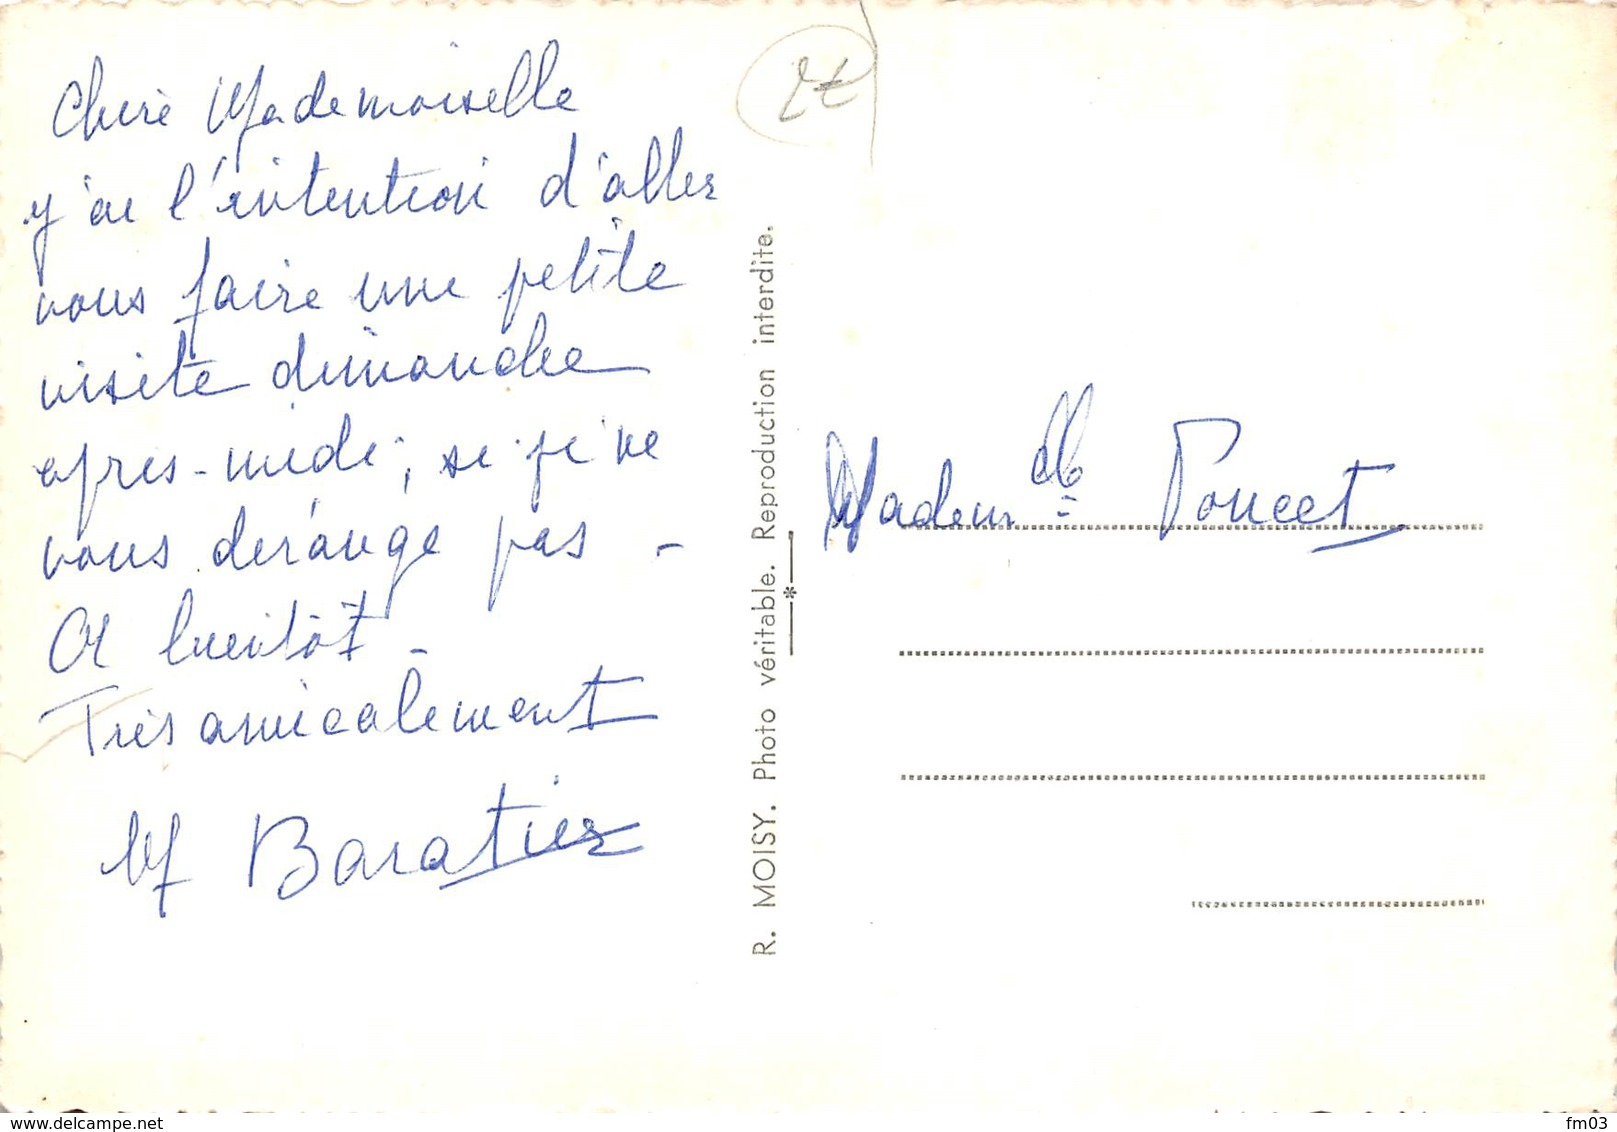 Chère Mademoiselle
j'ai l'intention d'aller
vous faire une petite
visite dimanche
après-midi, si je ne
vous dérange pas -
A bientôt -
Très amicalement
M Baratier
2€
R. MOISY. Photo véritable. Reproduction interdite.
Mademlle Poncet
www.delcampe.net
fm03